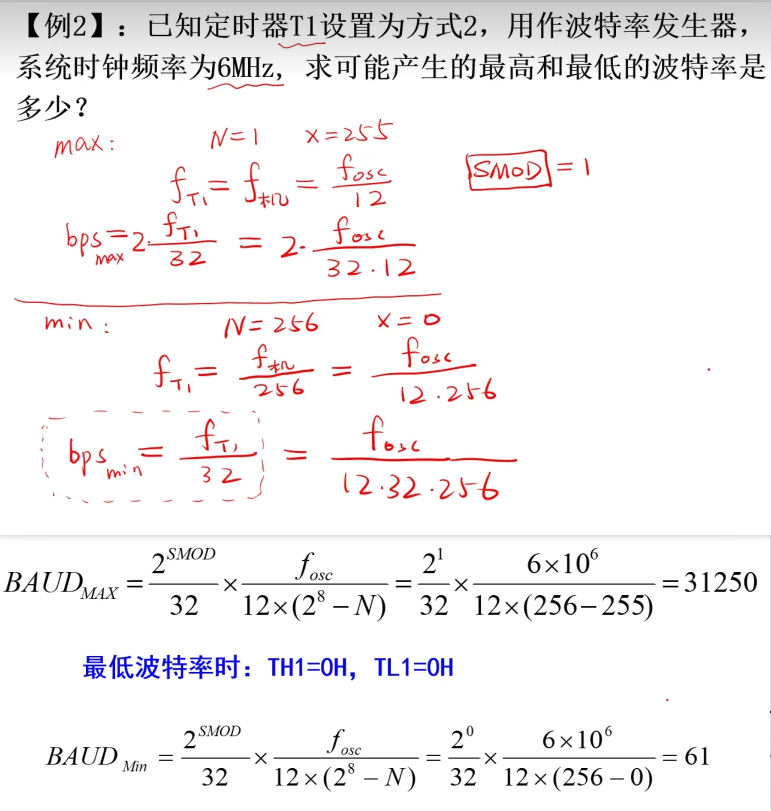 【例2】：已知定时器T1设置为方式2，用作波特率发生器，
系统时钟频率为6MHz，求可能产生的最高和最低的波特率是
多少？
max: N=1 x=255
f_T1 = f_机 = f_osc / 12 SMOD = 1
bps_max = 2·f_T1 / 32 = 2·f_osc / 32·12
min: N=256 x=0
f_T1 = f_机 / 256 = f_osc / 12·256
bps_min = f_T1 / 32 = f_osc / 12·32·256
BAUD_MAX = 2^SMOD / 32 × f_osc / 12×(2^8 − N) = 2^1 / 32 × 6×10^6 / 12×(256−255) = 31250
最低波特率时：TH1=0H，TL1=0H
BAUD_Min = 2^SMOD / 32 × f_osc / 12×(2^8 − N) = 2^0 / 32 × 6×10^6 / 12×(256−0) = 61